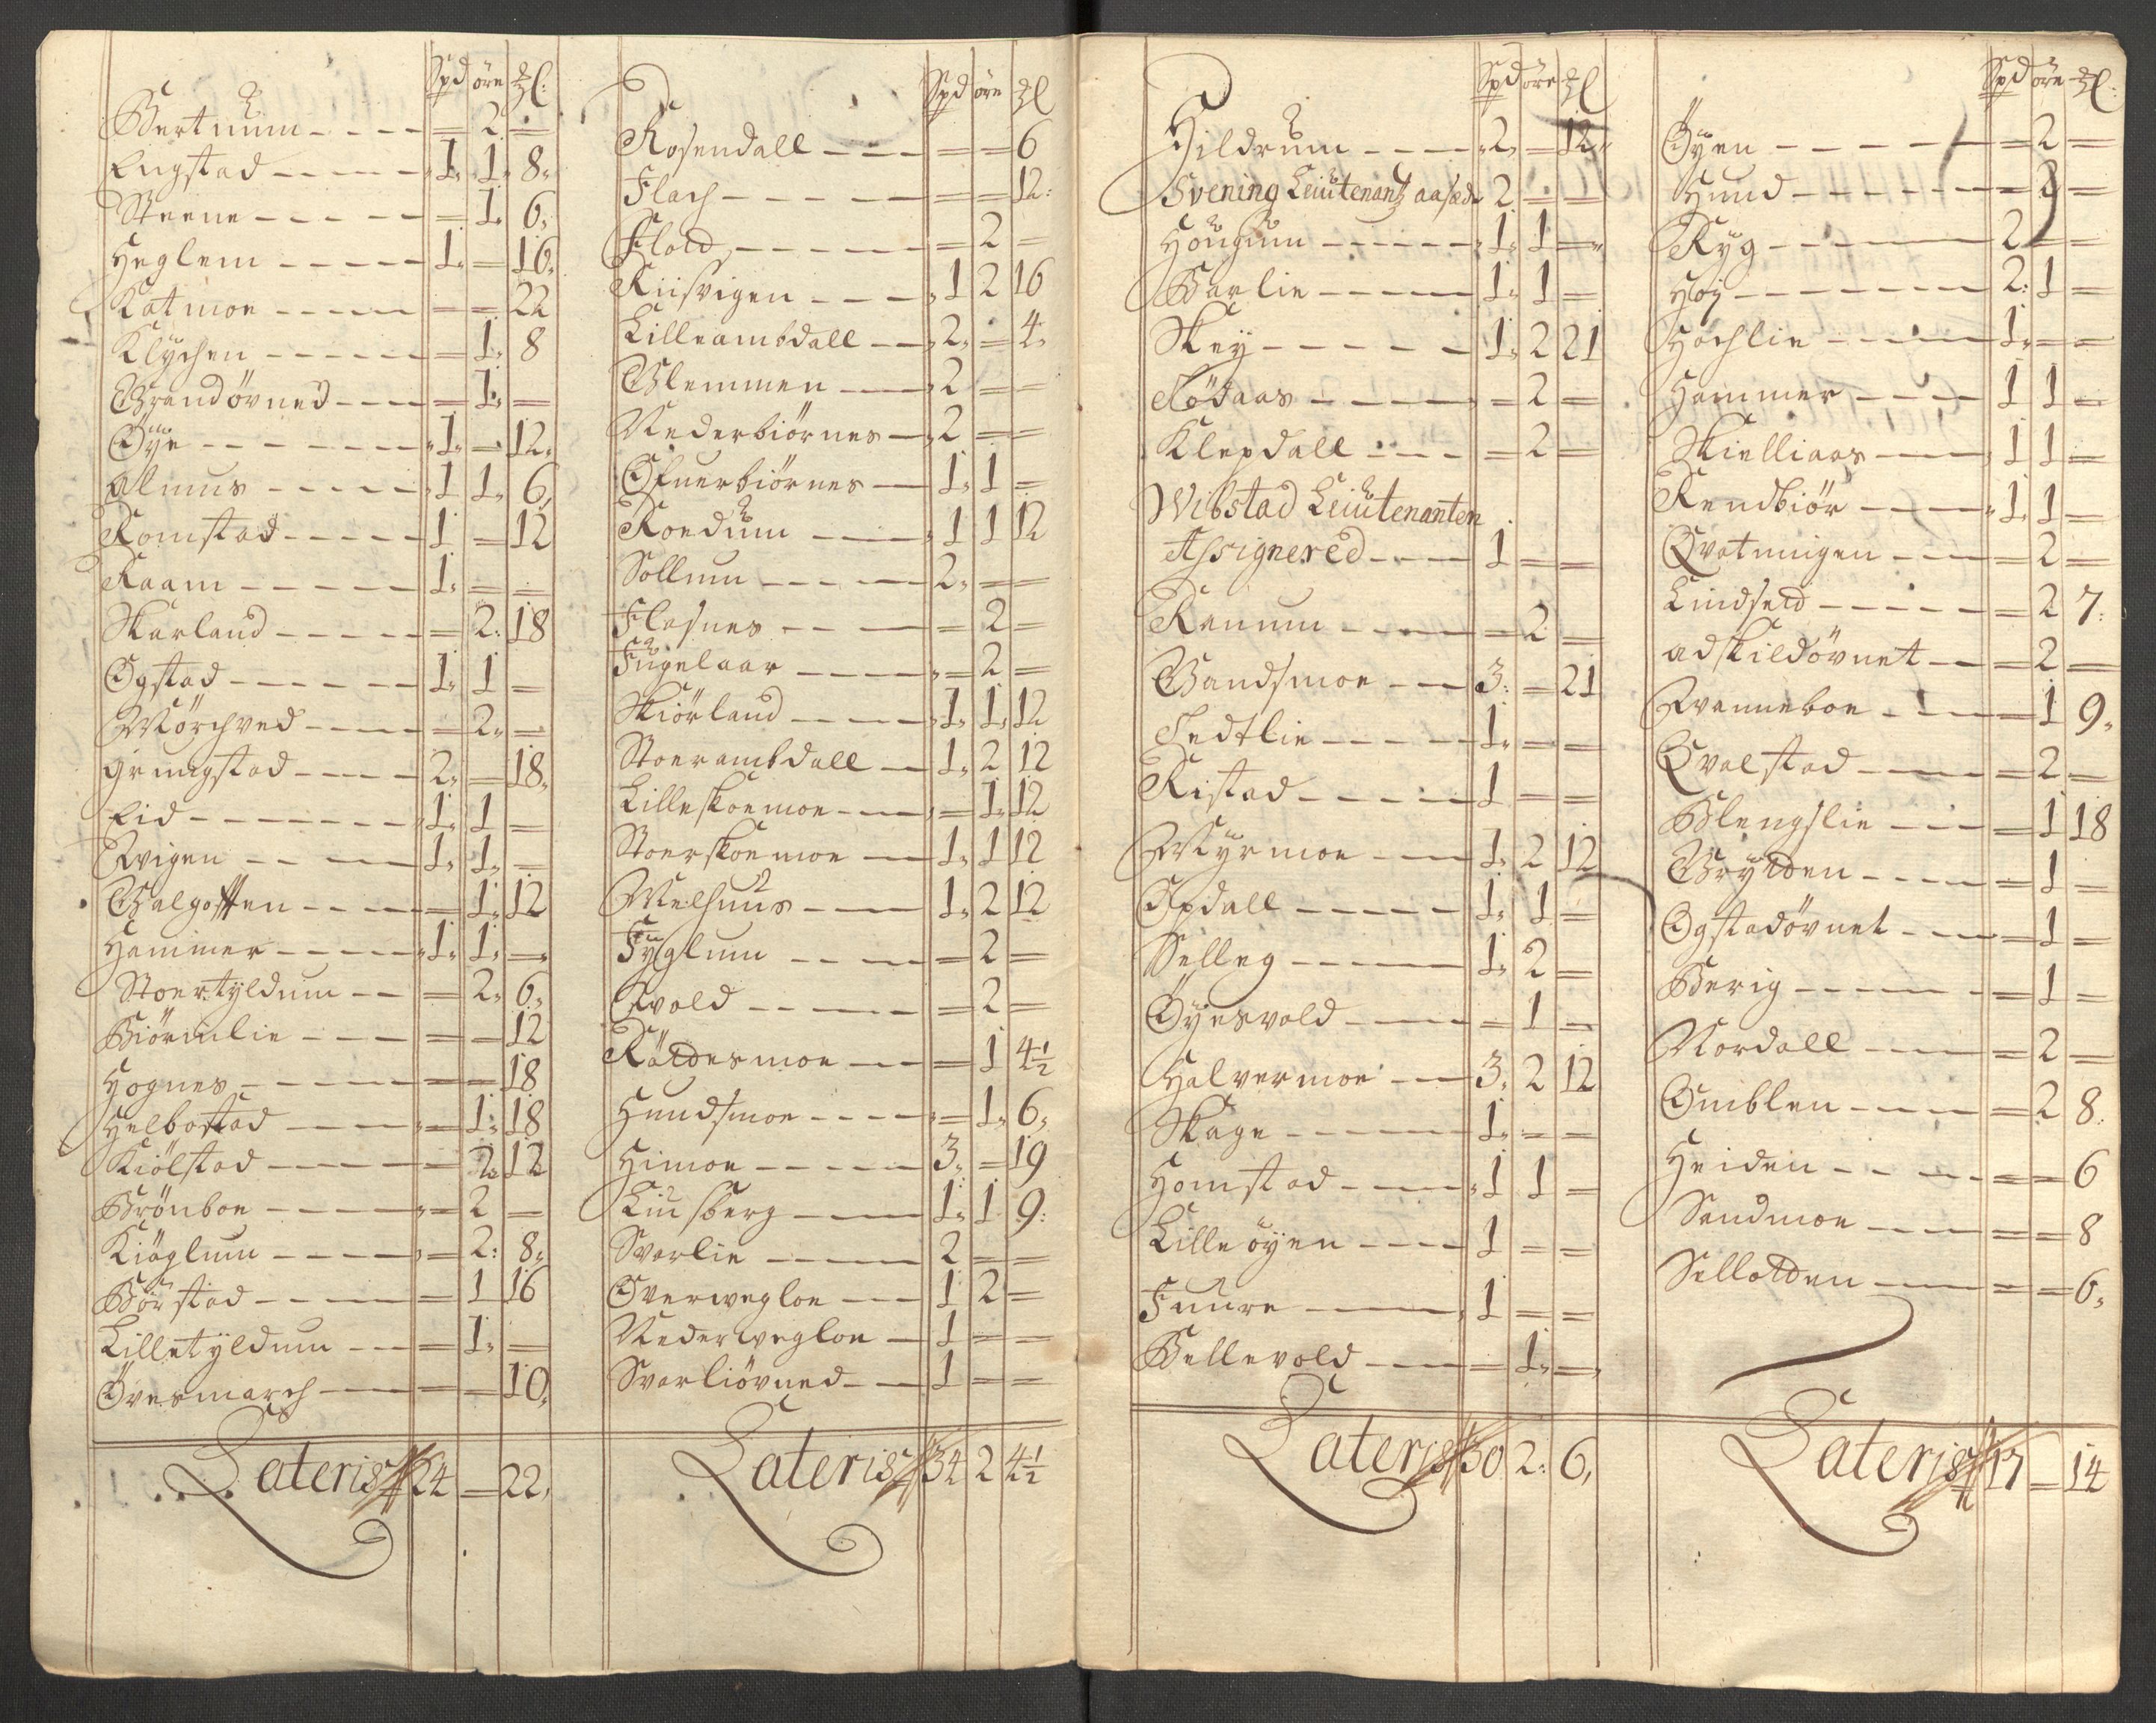 Spd öre ₰l:
Bertnum - - - - = 2. =
Engstad - - - - - 1. 1. 8.
Steene - - - - - = 1. 6.
Heglem - - - - - 1. = 16.
Katmoe - - - - - = = 22
Klÿchen - - - - - = 1. 8
Grandövned - - - = 1. =
Öÿe - - - - - - 1. = 12.
Almus - - - - - 1 1. 6.
Romstad - - - - - 1 = 12
Raam - - - - - 1. = =
Skarland - - - - - = 2. 18
Ogstad - - - - - 1. 1 =
Mörchved - - - - = 2. =
Gringstad - - - - 2. = 18.
Eid - - - - - - - 1. 1 =
Evigen - - - - - 1. 1. =
Galgotten - - - - = 1. 12
Hammer - - - - - 1. 1. =
Stoertÿldum - - = 2. 6.
Biörnlie - - - - = = 12
Hognes - - - - - = = 18
Helbostad - - - - = 1. 18
Kiölstad - - - - = 2. 12
Grönboe - - - - = 2 =
Kiöglum - - - - = 2: 8.
Börstad - - - - = 1 16
Lilletÿldum - - - = 1. =
Övermarch - - - = = 10.
Lateris 24 = 22.

Spd öre ₰l
Rosendall - - - = = 6
Flach - - - - - = = 12:
Floed - - - - - = 2 =
Riisvigen - - - 1 2 16
Lilleambdall - - 2. = 4.
Glemmen - - - 2 = =
Nederbiörnes - 2 = =
Ofuerbiörnes - 1. 1 =
Roedum - - - 1 1 12
Sollum - - - - 2. = =
Flasnes - - - - = 2 =
Fugelaar - - - - = 2 =
Skiörland - - - - 1. 1. 12
Stoerambdall - 1. 2 12
Lilleskoemoe - - - = 1. 12
Stoerskoemoe - 1. 1 12
Melhuus - - - 1. 2 12
Fÿglum - - - = 2 =
Qvold - - - - = 2 =
Rödesmoe - - = 1 4½
Hundsmoe - - - - = 1. 6.
Himoe - - - - - 3. = 19
Liusberg - - - 1. 1 9:
Svarlie - - - - 2 = =
Overwegloe - - 1 2 =
Nederwegloe - 1 = =
Svarliövned - - 1 = =
Lateris 34 2 4½

Spd öre ₰l
Hildrum - - - - 2. = 12.
Svening Leiutenantz aasæde 2 = =
Hougum - - - - - 1. 1 =
Barlie - - - - - 1. 1 =
Skey - - - - - 1. 2 21
Flödaas - - - - = 2 =
Klepdall - - - = 2 =
Wibstad Leiutenanten
Assignered - - - 1 = =
Ranum - - - - = 2 =
Gandsmoe - - 3. = 21
Tedtlie - - - - 1. = =
Ristad - - - - - 1 = =
Mÿrmoe - - - 1. 2 12
Opdall - - - - - 1. 1 =
Selleg - - - - 1. 2 =
Öÿesvold - - - = 1 =
Halvermoe - - 3. 2 12
Skage - - - - 1. = =
Homstad - - - - 1 1 =
Lilleöÿen - - - - 1 = =
Fuure - - - - 1 = =
Bellevold - - - = 1. =
Lateris 30 2: 6.

Spd öre ₰l:
Öÿen - - - - - = 2 =
Hund - - - - - = 2 =
Ryg - - - - - 2 = =
Høy - - - - - - 2. 1 =
Hochlie - - - - 1. = =
Hammer - - - - 1 1 =
Skielliaas - - - 1 1 =
Rendbiör - - - - 1. 1 =
Qvatningen - - - = 2 =
Lindsetd - - - - - = 2 7.
Adskildövnet - - = 2 =
Qvanneboe - - - = 1 9.
Qvalstad - - - - = 2 =
Blengslie - - - = 1 18
Grÿtden - - - - = 1 =
Ogstadövnet - - - = 1 =
Berig - - - - - = 1 =
Nordall - - - = 2 =
Omblen - - - - = 2 8.
Heiden - - - - = = 6
Sandmoe - - - = = 8
Sellotden - - - = = 6.
Lateris 17 = 14